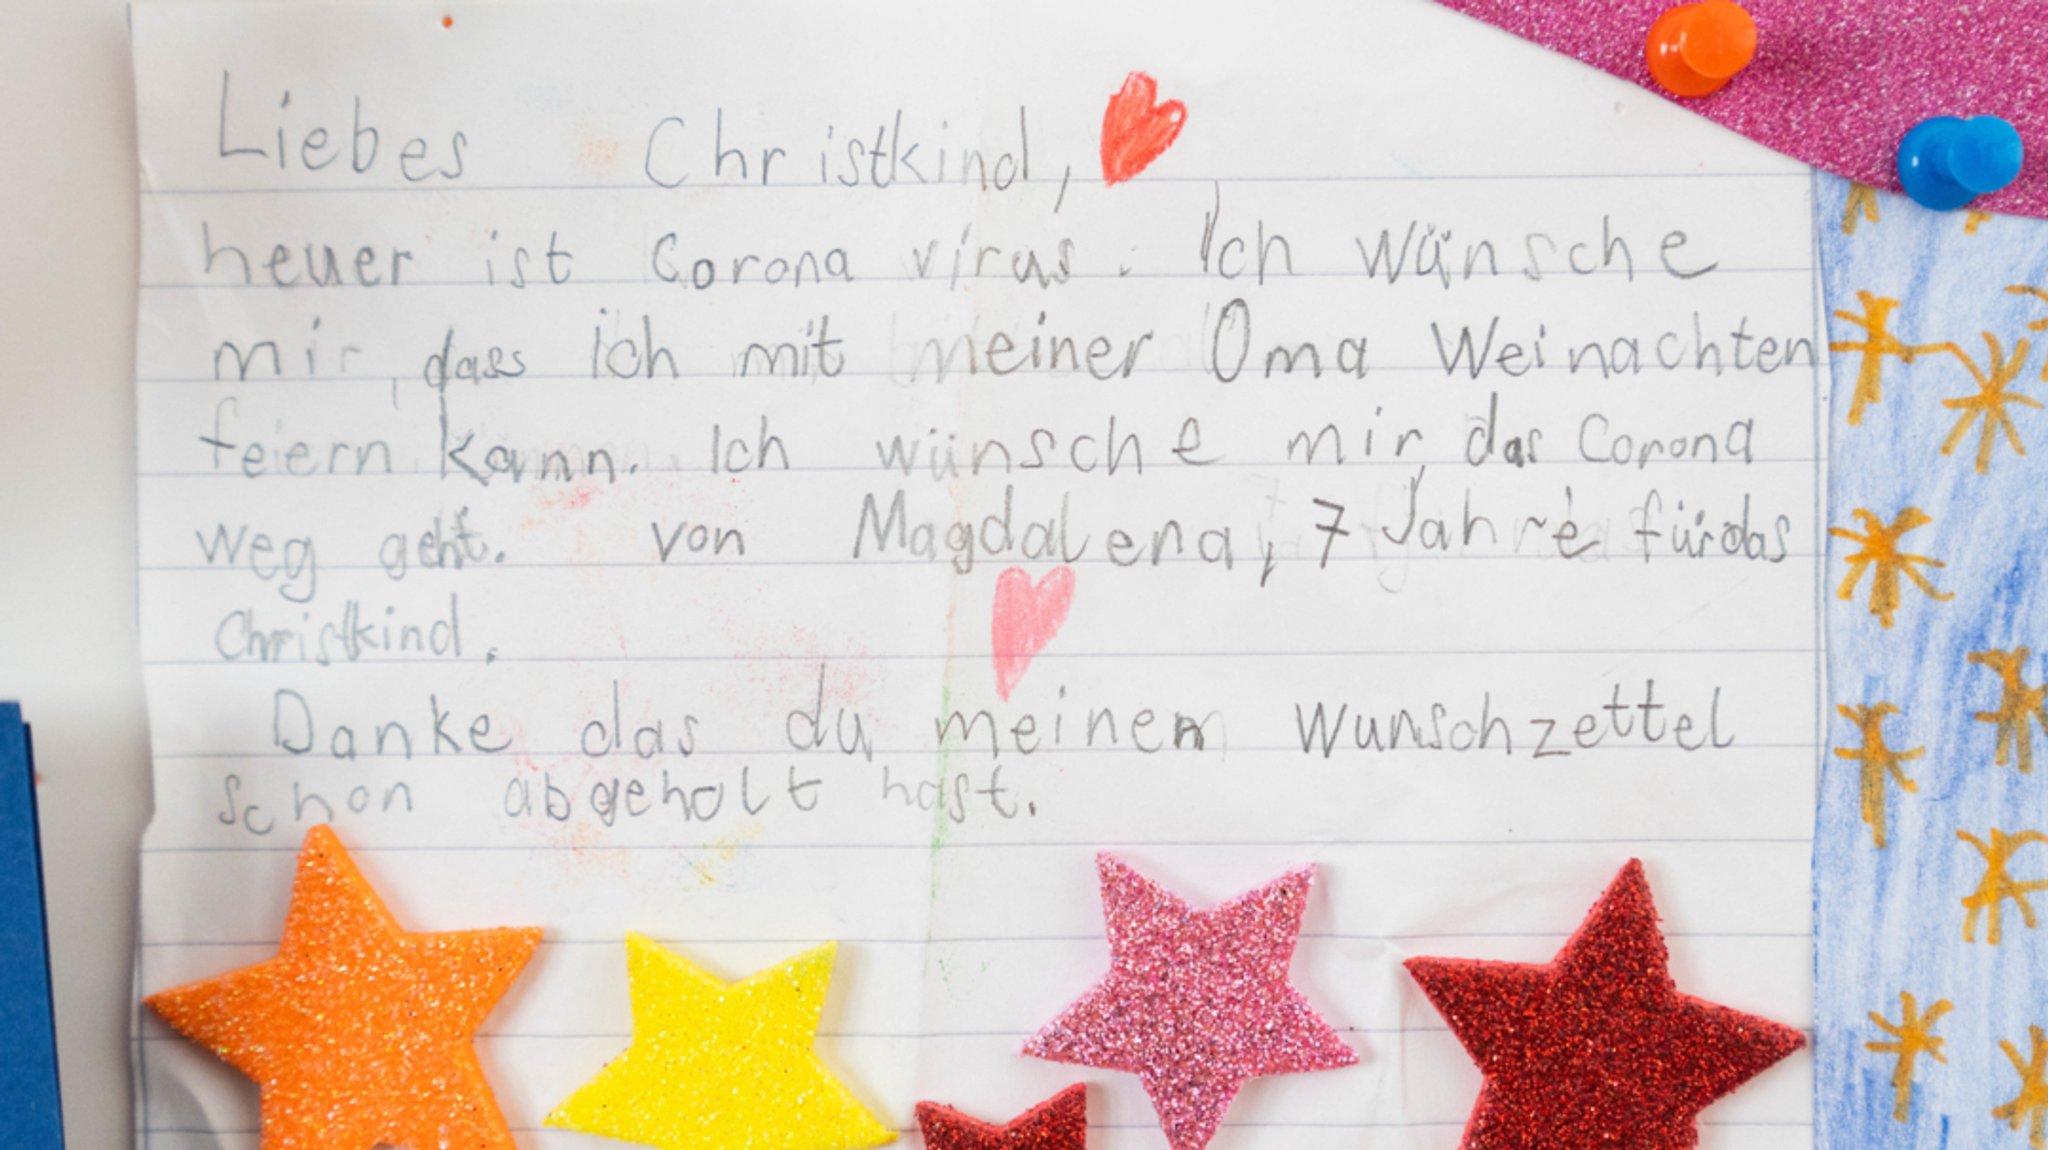 Liebes Christkind,
heuer ist Corona virus. Ich wünsche
mir, dass ich mit meiner Oma Weinachten
feiern kann. Ich wünsche mir, das Corona
weg geht. von Magdalena, 7 Jahre fürdas
Christkind.
Danke das du meinen Wunschzettel
schon abgeholt hast.